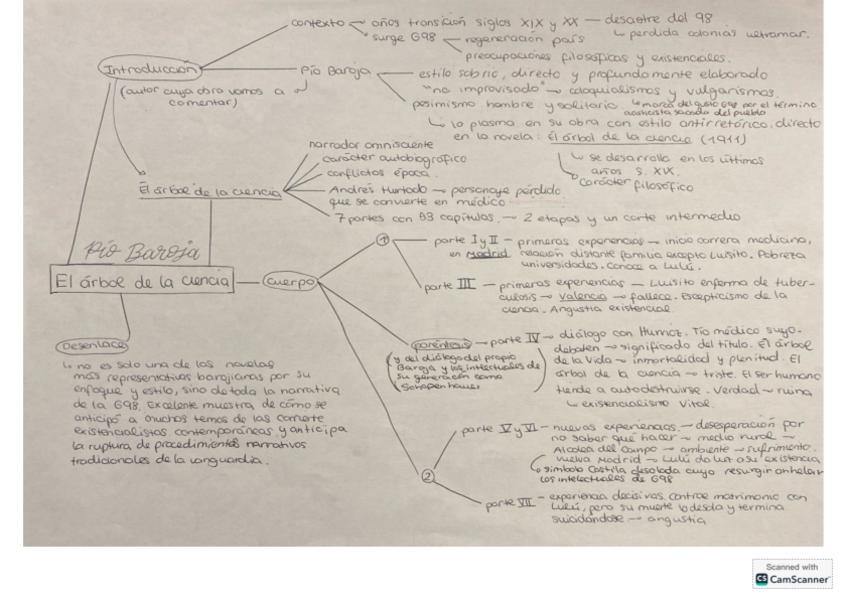 contexto — años transición siglos XIX y XX — desastre del 98
surge G98 — regeneración país
↳ perdida colonias ultramar.
preocupaciones filosóficas y existenciales.
Introducción
(autor cuya obra vamos a
comentar)
Pío Baroja
estilo sobrio, directo y profundamente elaborado
"no improvisado" → coloquialismos y vulgarismos.
pesimismo hombre y solitario.
↳ marca del gusto G98 por el término
del pueblo
↳ lo plasma en su obra con estilo antirretórico, directo
en la novela: El árbol de la ciencia (1911)
↳ se desarrolla en los últimos
años S. XIX.
carácter filosófico
El árbol de la ciencia
narrador omnisciente
carácter autobiográfico
conflictos época.
Andrés Hurtado — personaje pérdido
que se convierte en médico
7 partes con 53 capítulos. — 2 etapas y un corte intermedio
Pío Baroja
El árbol de la ciencia
Cuerpo
1
parte I y II — primeras experiencias — inicio carrera medicina,
en Madrid relación distante familia excepto Luisito. Pobreza
universidades. Conoce a Lulú.
parte III — primeras experiencias — Luisito enferma de tuber-
culosis → Valencia → fallece. Escepticismo de la
ciencia. Angustia existencial.
paréntesis — parte IV — diálogo con Iturrioz. Tío médico suyo.
(y del diálogo del propio
Baroja y los intelectuales de
su generación como
Schopenhauer)
debaten — significado del título. El árbol
de la Vida → inmortalidad y plenitud. El
árbol de la ciencia → triste. El ser humano
tiende a autodestruirse. Verdad → ruina
↳ existencialismo Vital.
2
parte V y VI — nuevas experiencias. — desesperación por
no saber que hacer → medio rural →
Alcolea del Campo → ambiente → sufrimiento.
Vuelve Madrid → Lulú da luz a su existencia
↳ símbolo Castilla desolada cuyo resurgir anhelan
los intelectuales de G98
parte VII — experiencias decisivas. contrae matrimonio con
Lulú, pero su muerte lo desola y termina
suicidándose → angustia
Desenlace
↳ no es solo una de las novelas
más representativas barojianas por su
enfoque y estilo, sino de toda la narrativa
de la G98. Excelente muestra de cómo se
anticipó a muchos temas de las corriente
existencialistas contemporáneas y anticipa
la ruptura de procedimientos narrativos
tradicionales de la vanguardia.
Scanned with
CS CamScanner